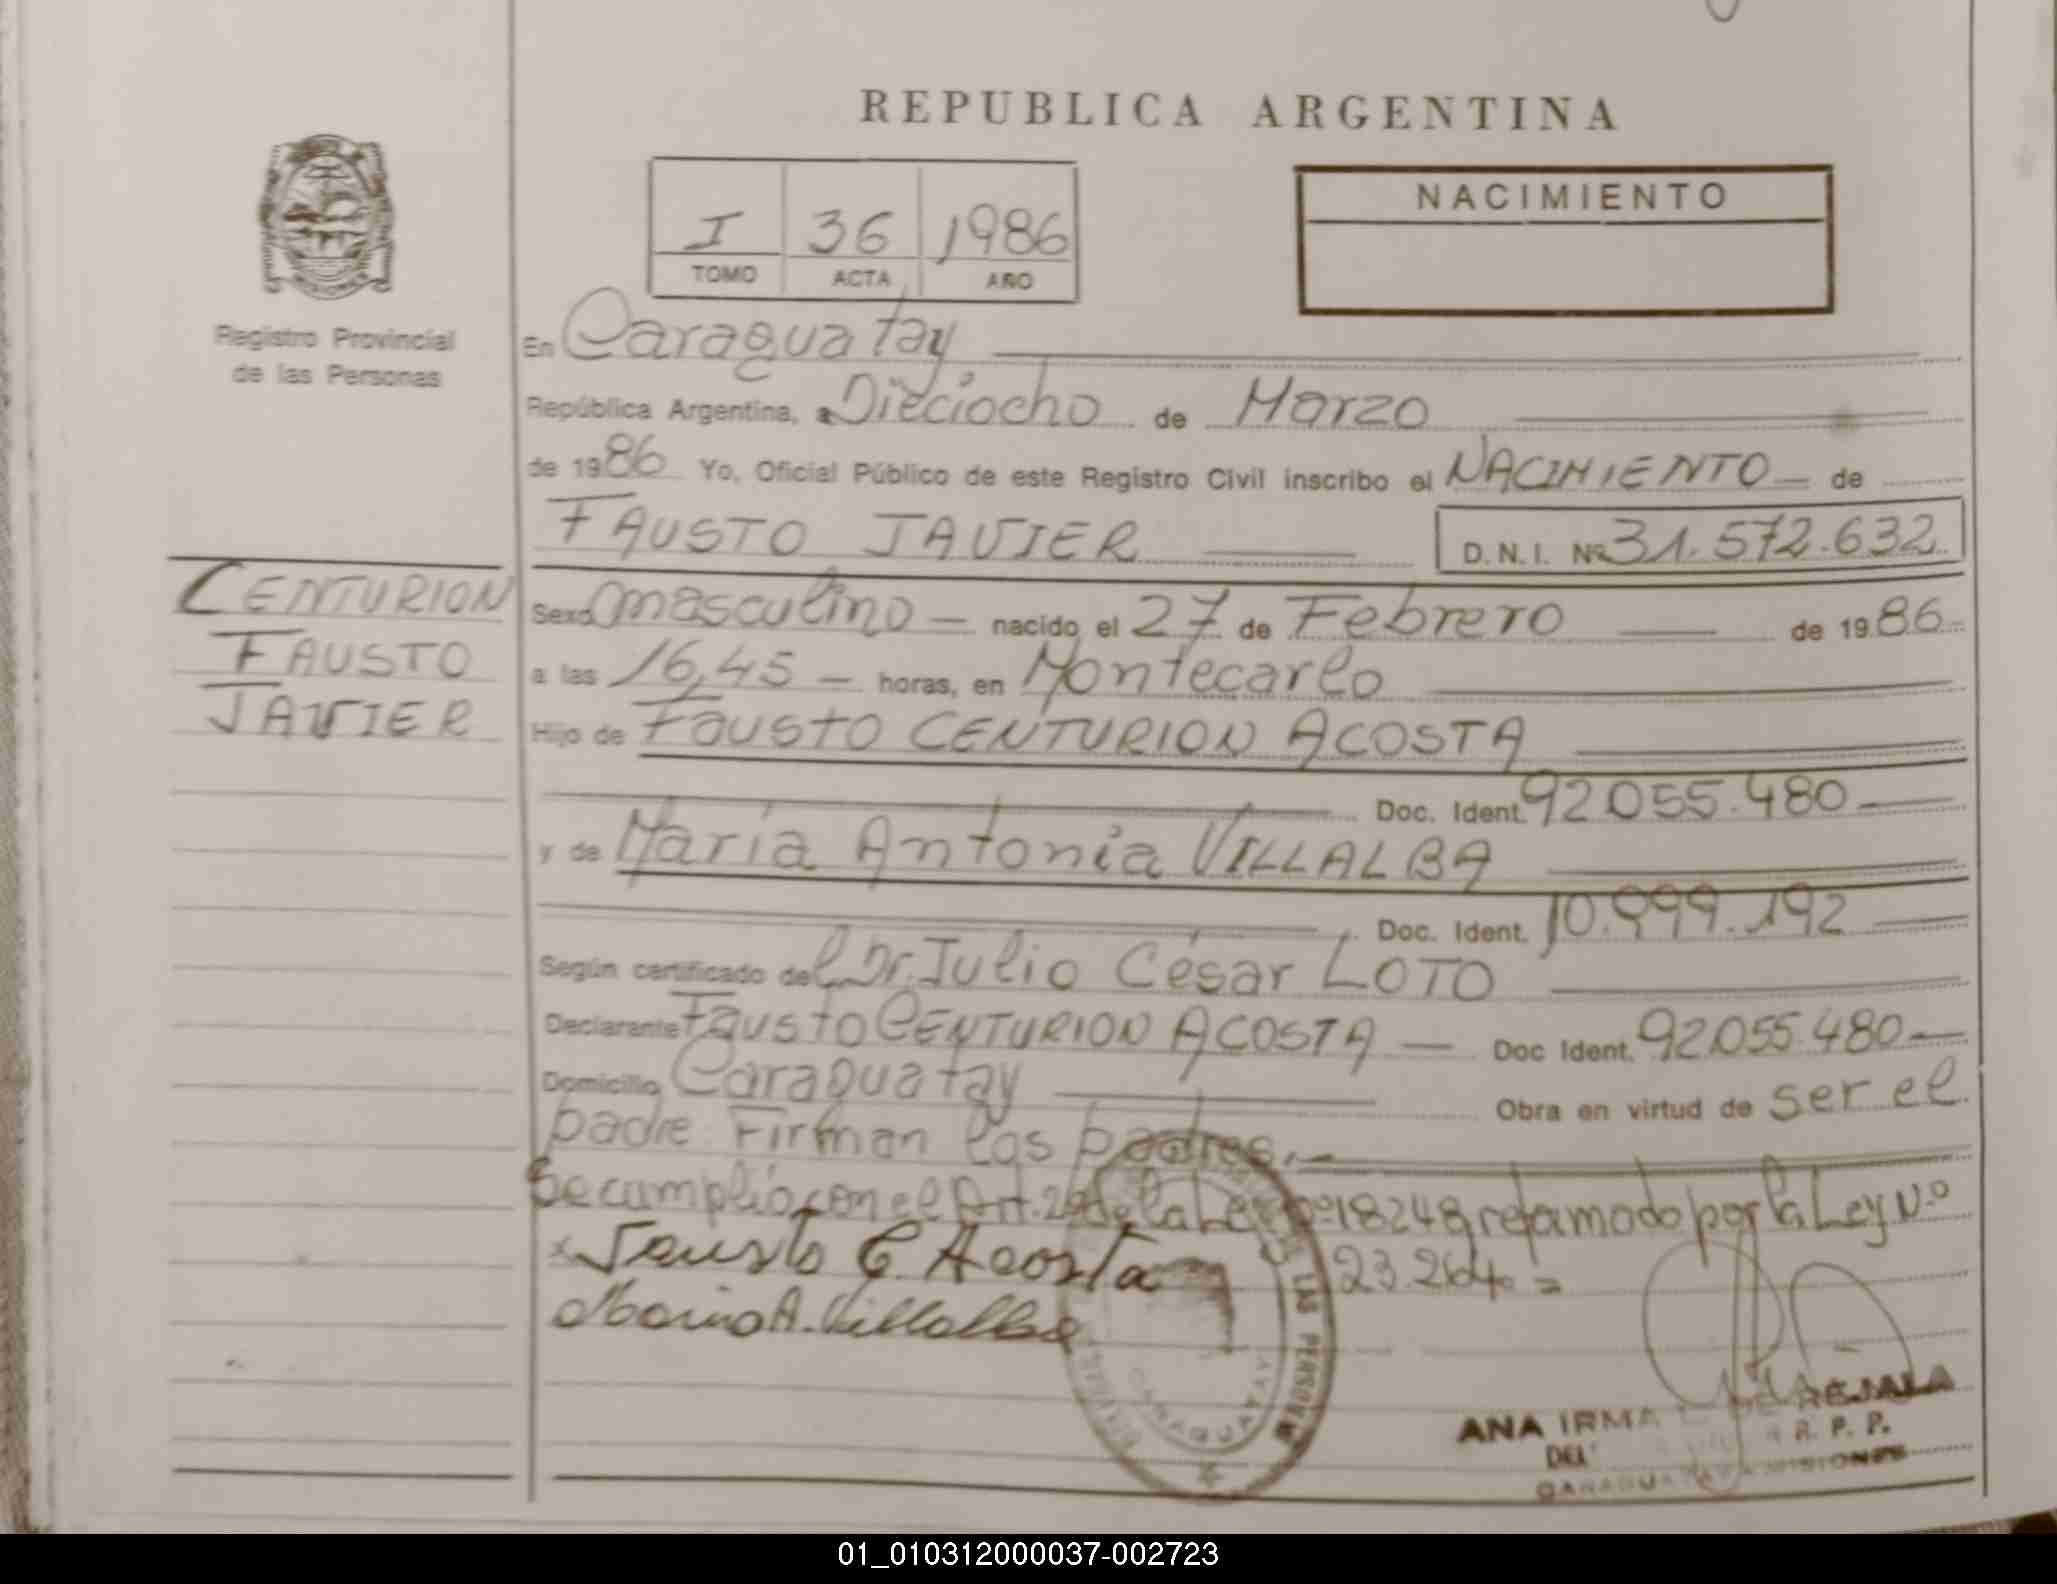 REPUBLICA ARGENTINA
I 36 1986
TOMO ACTA AÑO
NACIMIENTO
Registro Provincial
de las Personas
En Caraguatay
República Argentina, a Dieciocho de Marzo
de 1986 Yo, Oficial Público de este Registro Civil inscribo el NACIMIENTO de
FAUSTO JAVIER D.N.I. Nº 31.572.632
CENTURION
FAUSTO
JAVIER
Sexo masculino nacido el 27 de Febrero de 1986
a las 16,45 horas, en Montecarlo
Hijo de Fausto CENTURION ACOSTA
Doc. Ident. 92.055.480
y de María Antonia VILLALBA
Doc. Ident. 10.999.192
Según certificado del Dr. Julio César LOTO
Declarante Fausto CENTURION ACOSTA Doc Ident. 92.055.480
Domicilio Caraguatay Obra en virtud de ser el
padre. Firman los padres.
Se cumplió con el Art. de la Ley nº 18248 por la Ley Nº
23.264 =
x Fausto C. Acosta
Maria A. Villalba
LAS PERSONAS
CARAGUATAY
ANA IRMA
DEL R. P. P.
CARAGUATAY MISIONES
01_010312000037-002723